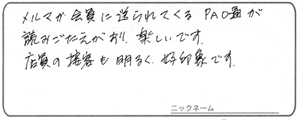 メルマガ会員に送られてくるPAO通が
読みごたえがあり、楽しいです。
店員の接客も明るく、好印象です。
ニックネーム